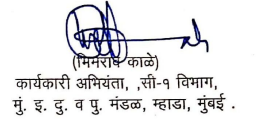 (भिमराव काळे)
कार्यकारी अभियंता, ,सी-१ विभाग,
मुं. इ. दु. व पु. मंडळ, म्हाडा, मुंबई .